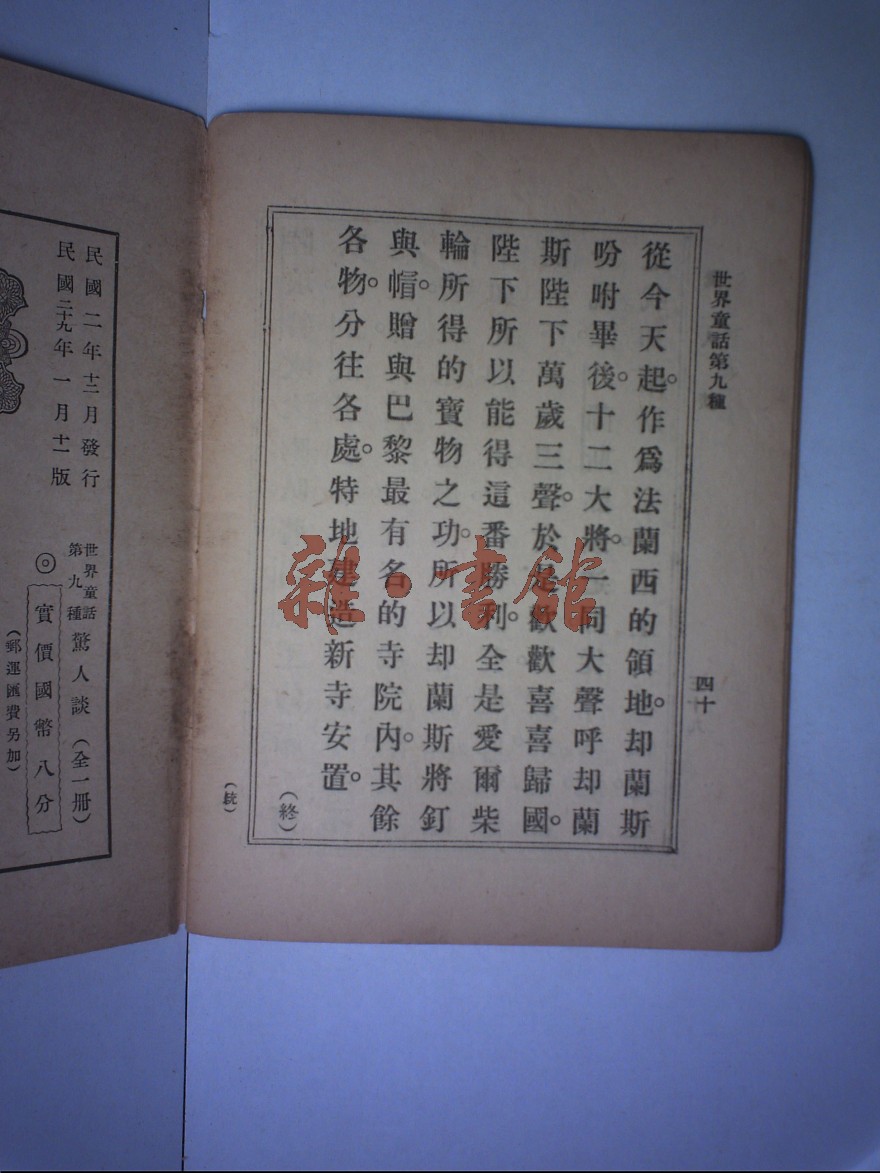 世界童話第九種
四十
從今天起。作爲法蘭西的領地。却蘭斯
吩咐畢後。十二大將。一同大聲呼却蘭
斯陛下萬歲三聲。於是歡歡喜喜歸國。
陛下所以能得這番勝利。全是愛爾柴
輪所得的寶物之功。所以却蘭斯將釘
與帽。贈與巴黎最有名的寺院內。其餘
各物。分往各處。特地建造新寺安置。
（終）
（統）
民國二年十二月發行
民國二十九年一月十一版
世界童話
第九種
驚人談（全一冊）
◎實價國幣八分
（郵運匯費另加）
雜·書館